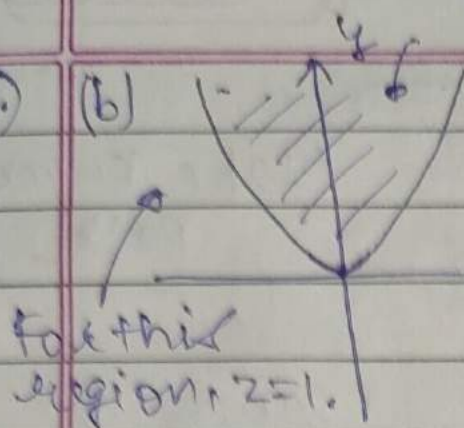 y
(b)
For this
region, z=1.